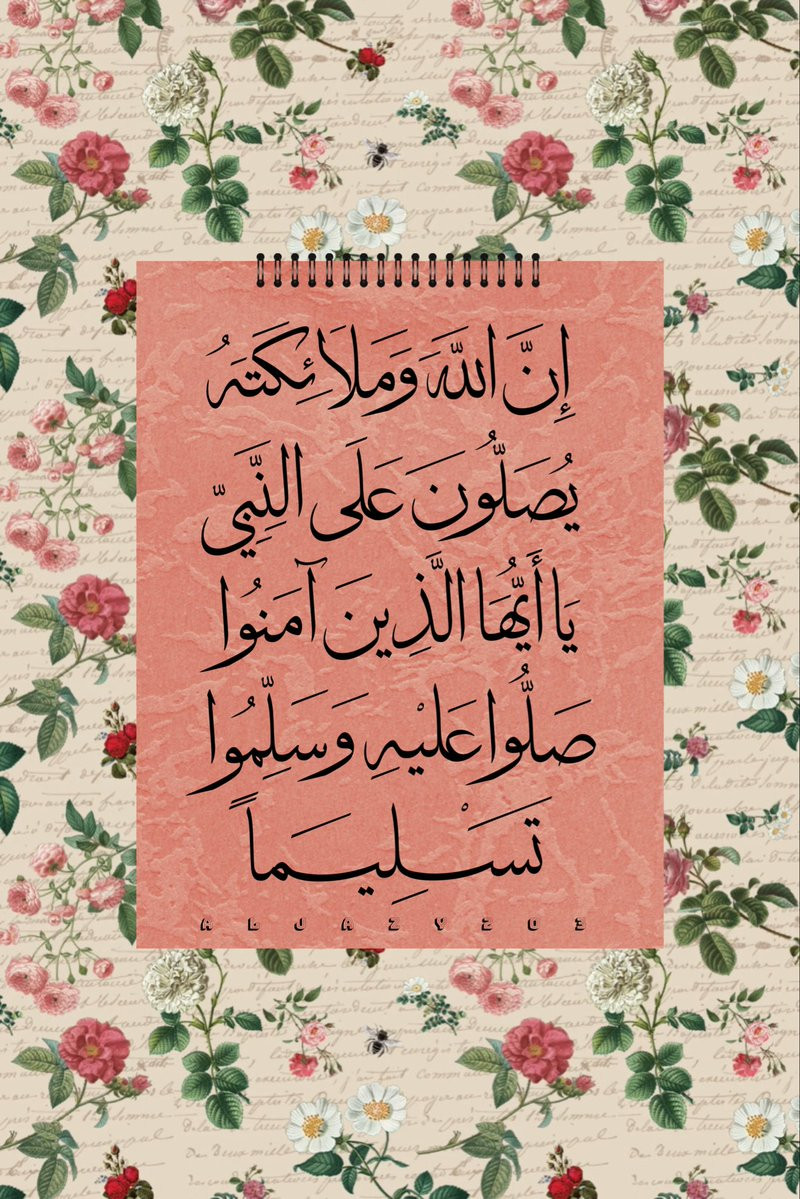 إِنَّ اللَّهَ وَمَلَائِكَتَهُ
يُصَلُّونَ عَلَى النَّبِيِّ
يَا أَيُّهَا الَّذِينَ آمَنُوا
صَلُّوا عَلَيْهِ وَسَلِّمُوا
تَسْلِيمًا
ALJAZY203